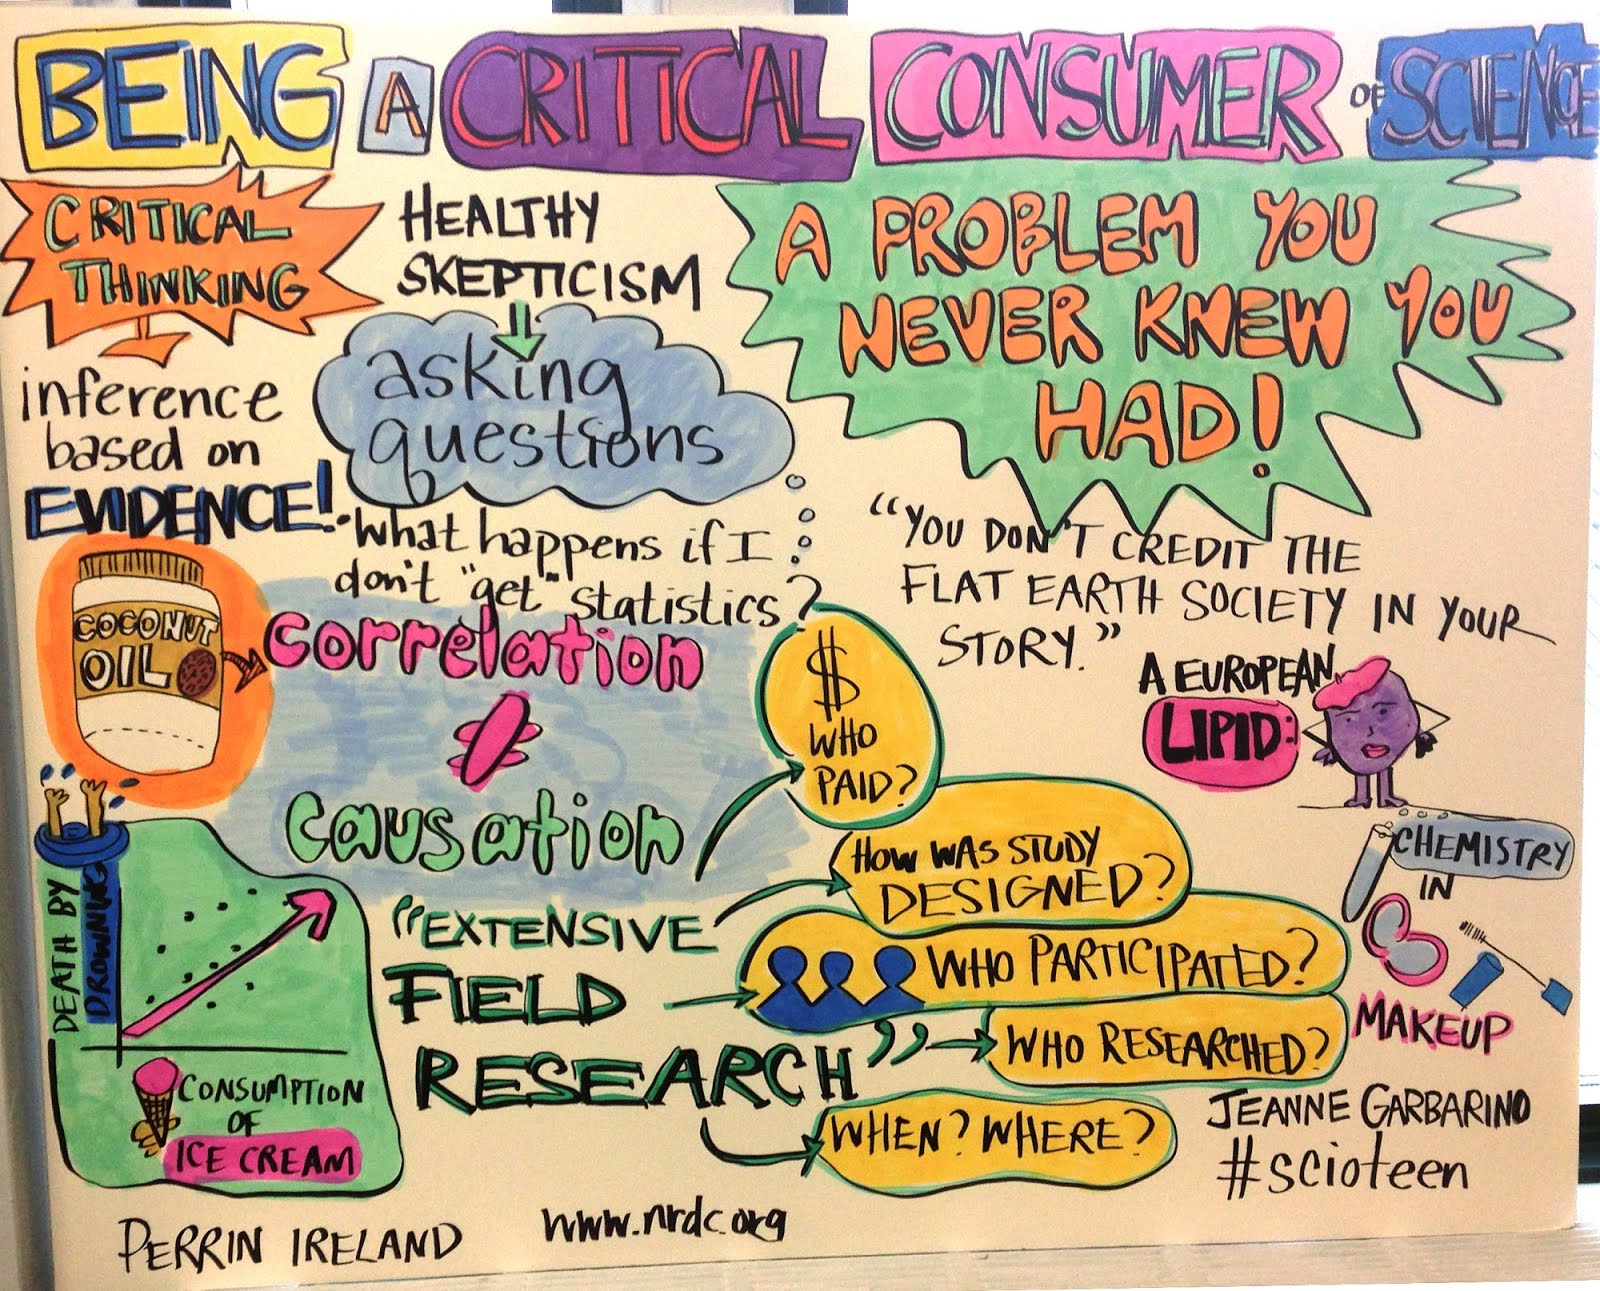 BEING A CRITICAL CONSUMER OF SCIENCE
CRITICAL
THINKING
inference
based on
EVIDENCE!
HEALTHY
SKEPTICISM
asking
questions
• What happens if I
don't "get" statistics?
A PROBLEM YOU
NEVER KNEW YOU
HAD!
"YOU DON'T CREDIT THE
FLAT EARTH SOCIETY IN YOUR
STORY."
COCONUT
OIL
correlation
≠
causation
$
WHO
PAID?
A EUROPEAN
LIPID:
HOW WAS STUDY
DESIGNED?
CHEMISTRY
IN
MAKEUP
DEATH BY
DROWNING
CONSUMPTION
OF
ICE CREAM
"EXTENSIVE
FIELD
RESEARCH"
WHO PARTICIPATED?
WHO RESEARCHED?
WHEN? WHERE?
JEANNE GARBARINO
#scioteen
PERRIN IRELAND
www.nrdc.org